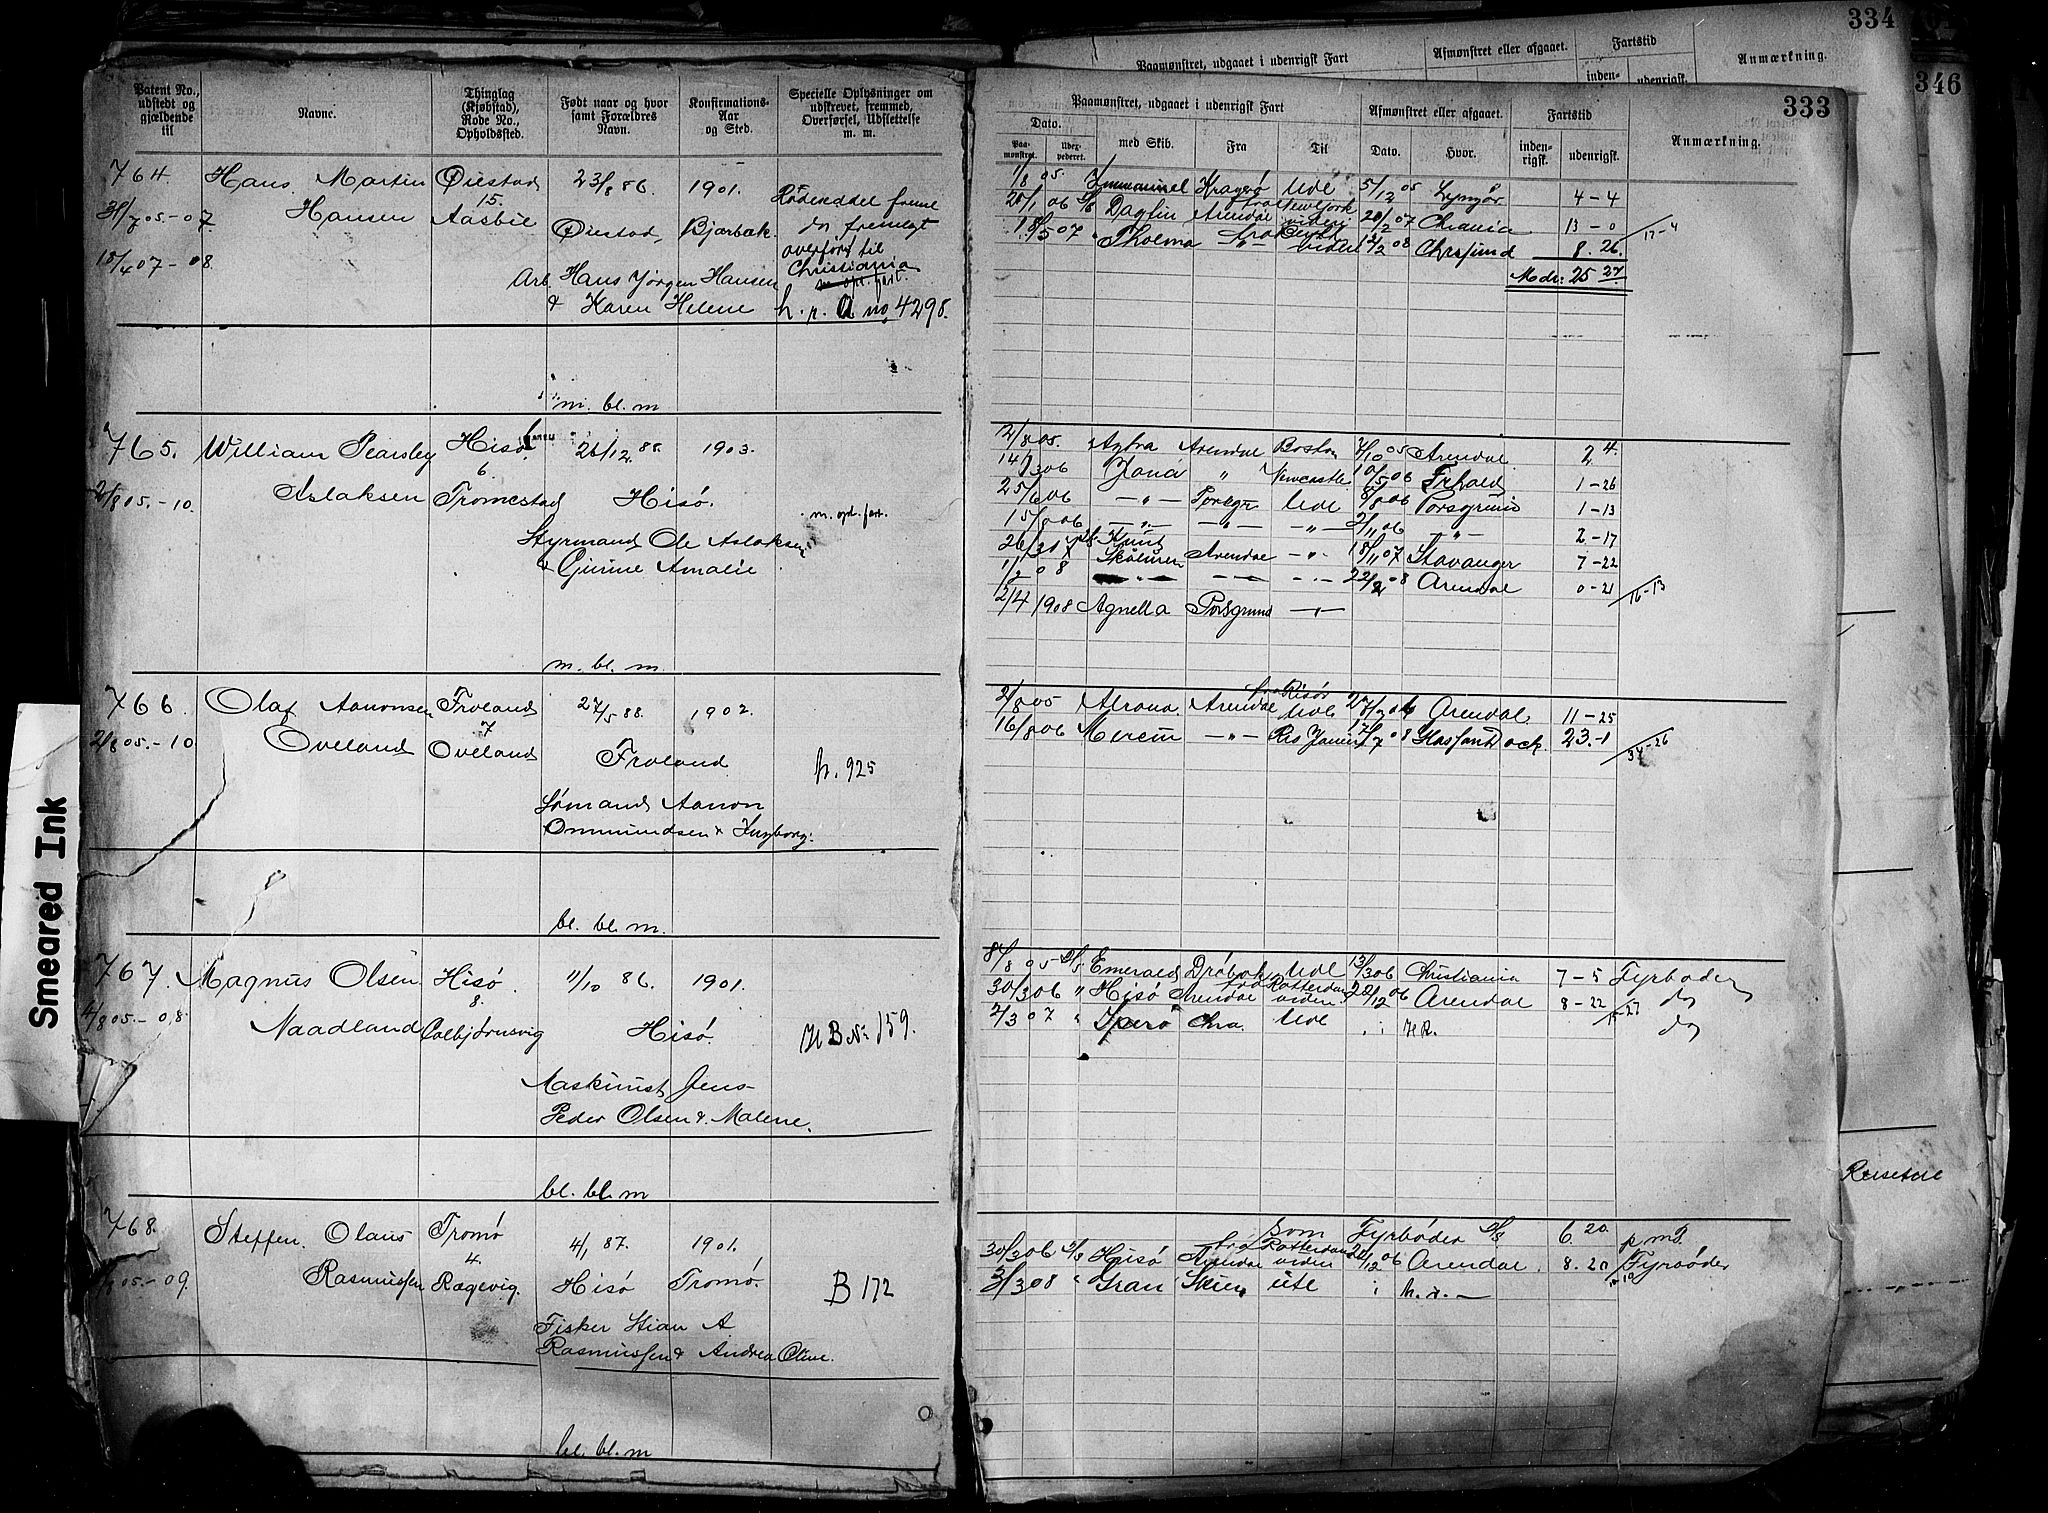 334
346
333
Paamønstret, udgaaet i udenrigsk Fart
Afmønstret eller afgaaet.
Fartstid
Anmærkning.
inden-
udenrigsk.
Patent No.,
udstedt og
gjældende
til
Navne.
Thinglag
(Kjøbstad),
Rode No.,
Opholdssted.
Født naar og hvor
samt Forældres
Navn.
Konfirmations-
Aar
og Sted.
Specielle Oplysninger om
udskrevet, fremmed,
Overførsel, Udslettelse
m. m.
Paamønstret, udgaaet i udenrigsk Fart
Afmønstret eller afgaaet.
Fartstid
Anmærkning.
Dato.
Paa-
mønstret.
med Skib.
Fra
Til
Dato.
Hvor.
inden-
rigsk.
udenrigsk.
764. Hans Martin Øiestad 23/8 86. 1901.
15.
31/7 05.-07 Hansen Aasbie Øiestad, Bjorbæk.
18/4 07-08.
overført til
Christiania
Arb. Hans Jørgen Hansen
& Karen Helene h. p. A no. 4298.
m. bl. m
1/8 05. Immanuel Kragerø Ude 5/12 05 Lyngør 4-4
06 Dagfin Arendal 07 Chrania 13-0
07 Tholma 08 Chrssund 8.26. 17-4
Mdr: 25 27
765. William Pearsley Hisø 26/12 88 1903.
6
2/8 05.-10. Aslaksen Tromestad Hisø. m. opl. fart.
Styrmand Ole Aslaksen
& Gurine Amalie
m. bl. m.
12/8 05. Arendal Boston 2/10 05 Arendal. 2 4.
14/3 06 Jona " Newcastle 10/5 06 1-26
25/6 06 -"- Porsgr Ude 8/8 06 Porsgrund 1-13
15/8 06 -"- -"- -"- 2/11 06 -"- 2-17
Knud
Skaluren Arendal -"- 18/11 07 Stavanger 7-22
1/2 08 -"- -"- 22/2 08 Arendal 0-21 16-13
2/4 1908 Agnella Porsgrund -"-
766 Olaf Aanonsen Froland 27/5 88. 1902.
7
2/8 05.-10 Oveland Oveland Froland h. 925
Sømand Aanon
Ommundsen & Ingborg.
bl. bl. m.
fra Risør
2/8 05 Arendal Ude Arendal. 11-25
16/8 06 -"- 08 23.-1 34-26
767. Magnus Olsen Hisø 11/10 86. 1901.
8.
4/8 05.-08. Naadland Colbjørnsvig Hisø. B No 159.
Maskinist Jens
Peder Olsen & Malene.
bl. bl. m
Emerald Drøbak Ude 13/3 06 Christiania 7-5 Fyrbøder
fra Rotterdam
30/3 06 " Hisø Arendal viden 12 06 Arendal 8-22 do
15-27
2/3 07 " Chra. Ude i H.R. do
768. Steffen Olaus Tromø 4/1 87. 1901.
4.
05.-09. Rasmussen Rægevig. Hisø Tromø. B 172
Fisker A
Rasmussen & Andrea Oline.
bl. bl. m
som Fyrbøder 6.20. p. md.
fra Rotterdam
30/3 06 Hisø Arendal viden 12 06 Arendal. 8.20 Fyrbøder
3/3 08 " Gran Skien ute i h.r.
Smeared Ink